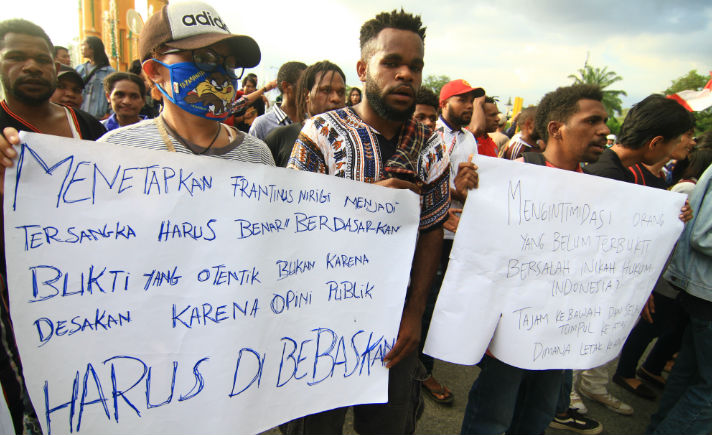 adidas
MENETAPKAN FRANTINUS NIRIGI MENJADI
TERSANGKA HARUS BENAR" BERDASARKAN
BUKTI YANG OTENTIK BUKAN KARENA
DESAKAN KARENA OPINI PUBLIK
HARUS DI BEBASKAN
MENGINTIMIDASI ORANG
YANG BELUM TERBUKTI
BERSALAH INIKAH HUKUM
INDONESIA?
TAJAM KEBAWAH DAN
TUMPUL KE
DIMANA LETAK